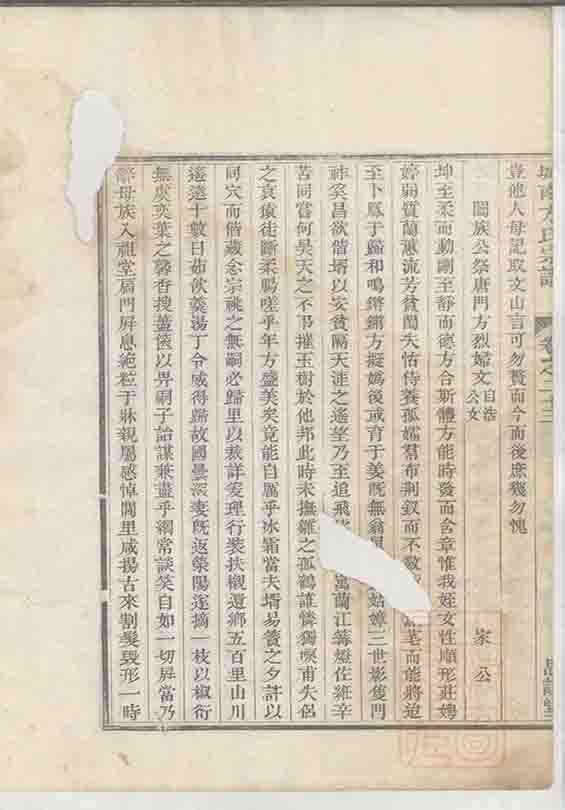 城南方氏宗譜
卷之二十三
豈他人母記取文山言可勿贅而今而後庶幾勿愧
闔族公祭唐門方烈婦文
自浩公女
家公
坤至柔而動剛至靜而德方合斯體方能時發而含章惟我姪女性順形莊娉
婷弱質蘭蕙流芳貧閨失怙侍養孤孀羣布荆釵而不敢 荼茗而能將迨
至卜鳳于歸和鳴鏘鏘方擬嬀後或育于姜旣無翁 姑嫜三世影隻門
祚奚昌欲偕壻以安貧隔天涯之遙望乃至追飛 寓蘭江篝燈佐維辛
苦同嘗何昊天之不弔摧玉樹於他邦此時未撫雛之孤鶴誰憐獨唳甫失侶
之哀猿徒斷柔腸嗟乎年方盛美矣竟能自厲乎冰霜當夫壻易簀之夕許以
同穴而偕藏念宗祧之無嗣必歸里以裁詳爰理行裝扶櫬還鄉五百里山川
遙遠十數日茹飲羹湯丁令威得歸故國曇深妻旣返滎陽遂擕一枝以椒衍
無虞奕葉之馨香搜蓋篋以畀嗣子詒謀兼盡乎綱常談笑自如一切屏當乃
辭母族入祖堂扃門屏息絶粒于牀親屬感悼閭里咸揚古來割髮毀形一時